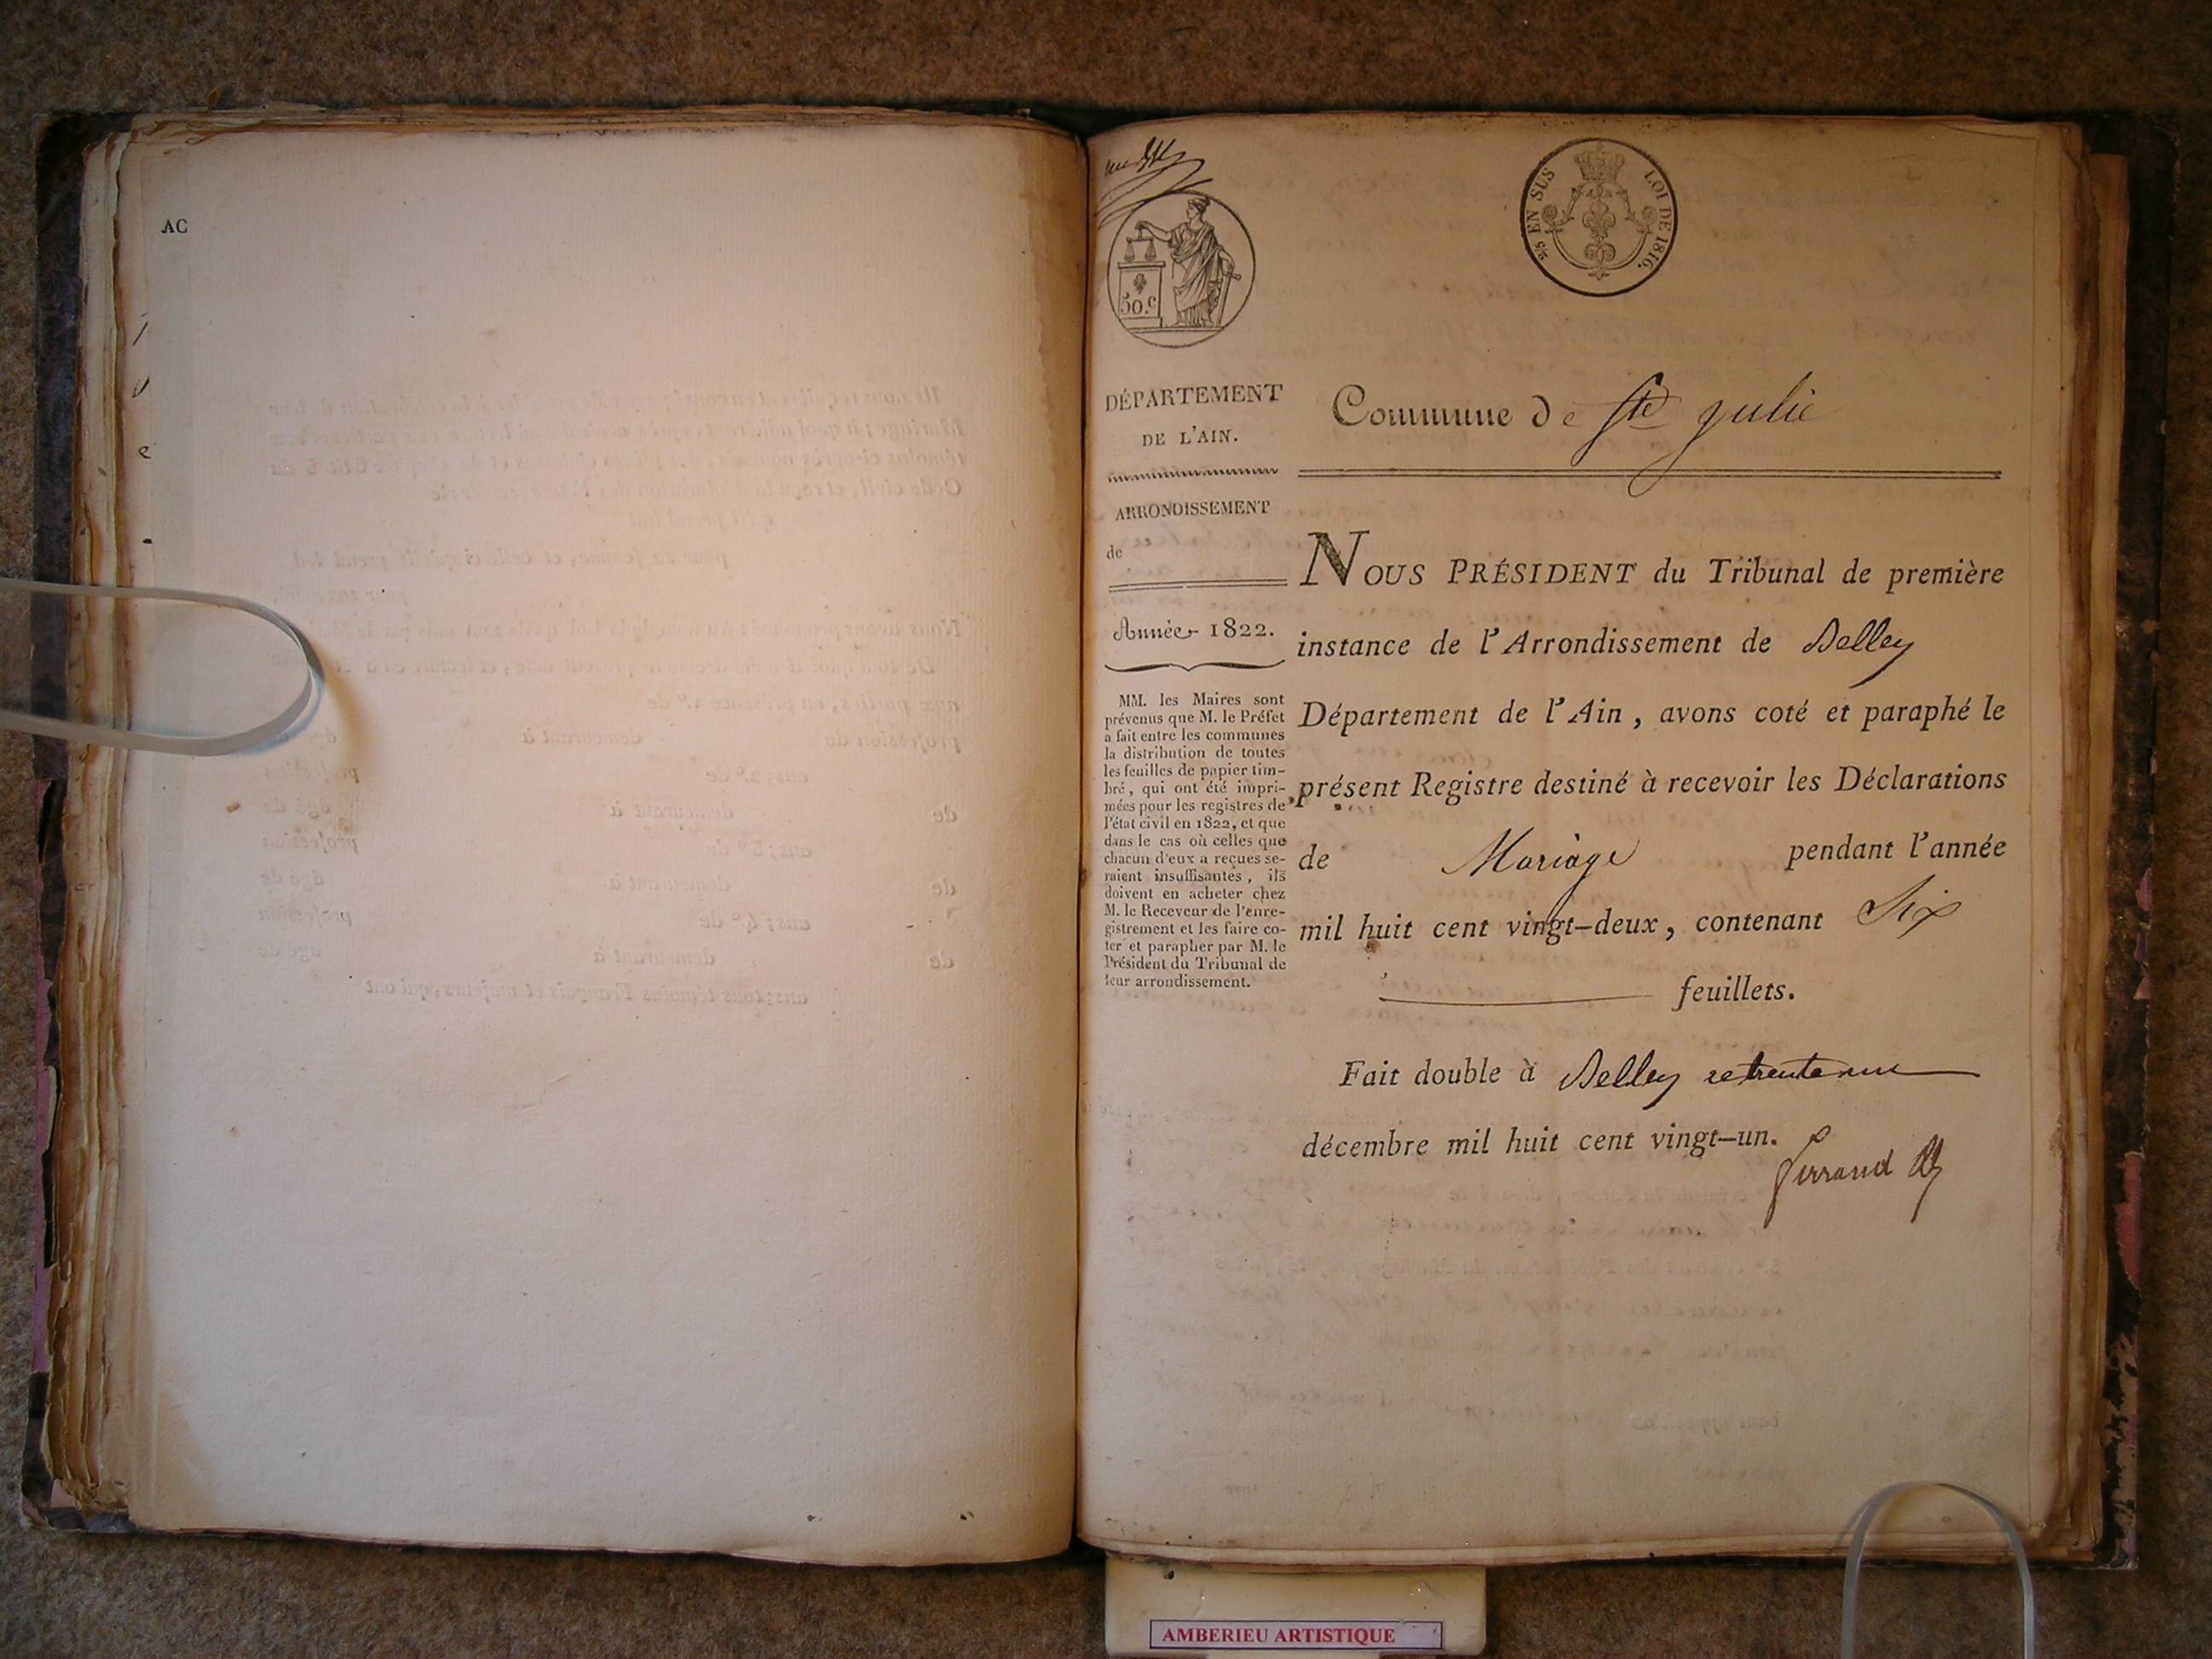 AC
50.c
EN SUS
LOI DE 1816.
DÉPARTEMENT
DE L'AIN.
Commune de Ste julie
ARRONDISSEMENT
de
Année 1822.
MM. les Maires sont
prévenus que M. le Préfet
a fait entre les communes
la distribution de toutes
les feuilles de papier tim-
bré, qui ont été impri-
mées pour les registres de
l'état civil en 1822, et que
dans le cas où celles que
chacun d'eux a reçues se-
raient insuffisantes, ils
doivent en acheter chez
M. le Receveur de l'enre-
gistrement et les faire co-
ter et parapher par M. le
Président du Tribunal de
leur arrondissement.
NOUS PRÉSIDENT du Tribunal de première
instance de l'Arrondissement de Belley
Département de l'Ain, avons coté et paraphé le
présent Registre destiné à recevoir les Déclarations
de Mariage pendant l'année
mil huit cent vingt-deux, contenant Six
feuillets.
Fait double à Belley le trente un
décembre mil huit cent vingt-un.
AMBERIEU ARTISTIQUE